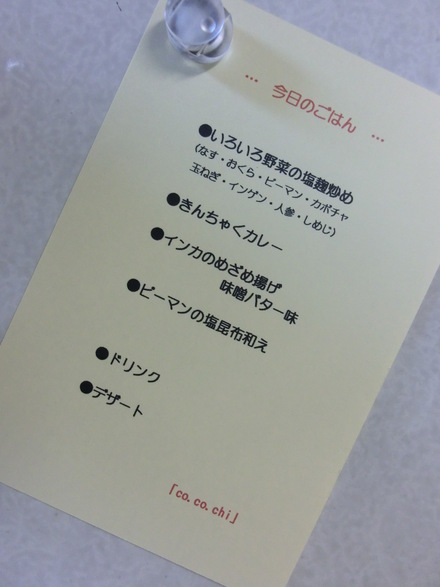 … 今日のごはん …
●いろいろ野菜の塩麹炒め
(なす・おくら・ピーマン・カボチャ
玉ねぎ・インゲン・人参・しめじ)
●きんちゃくカレー
●インカのめざめ揚げ
味噌バター味
●ピーマンの塩昆布和え
●ドリンク
●デザート
「co.co.chi」